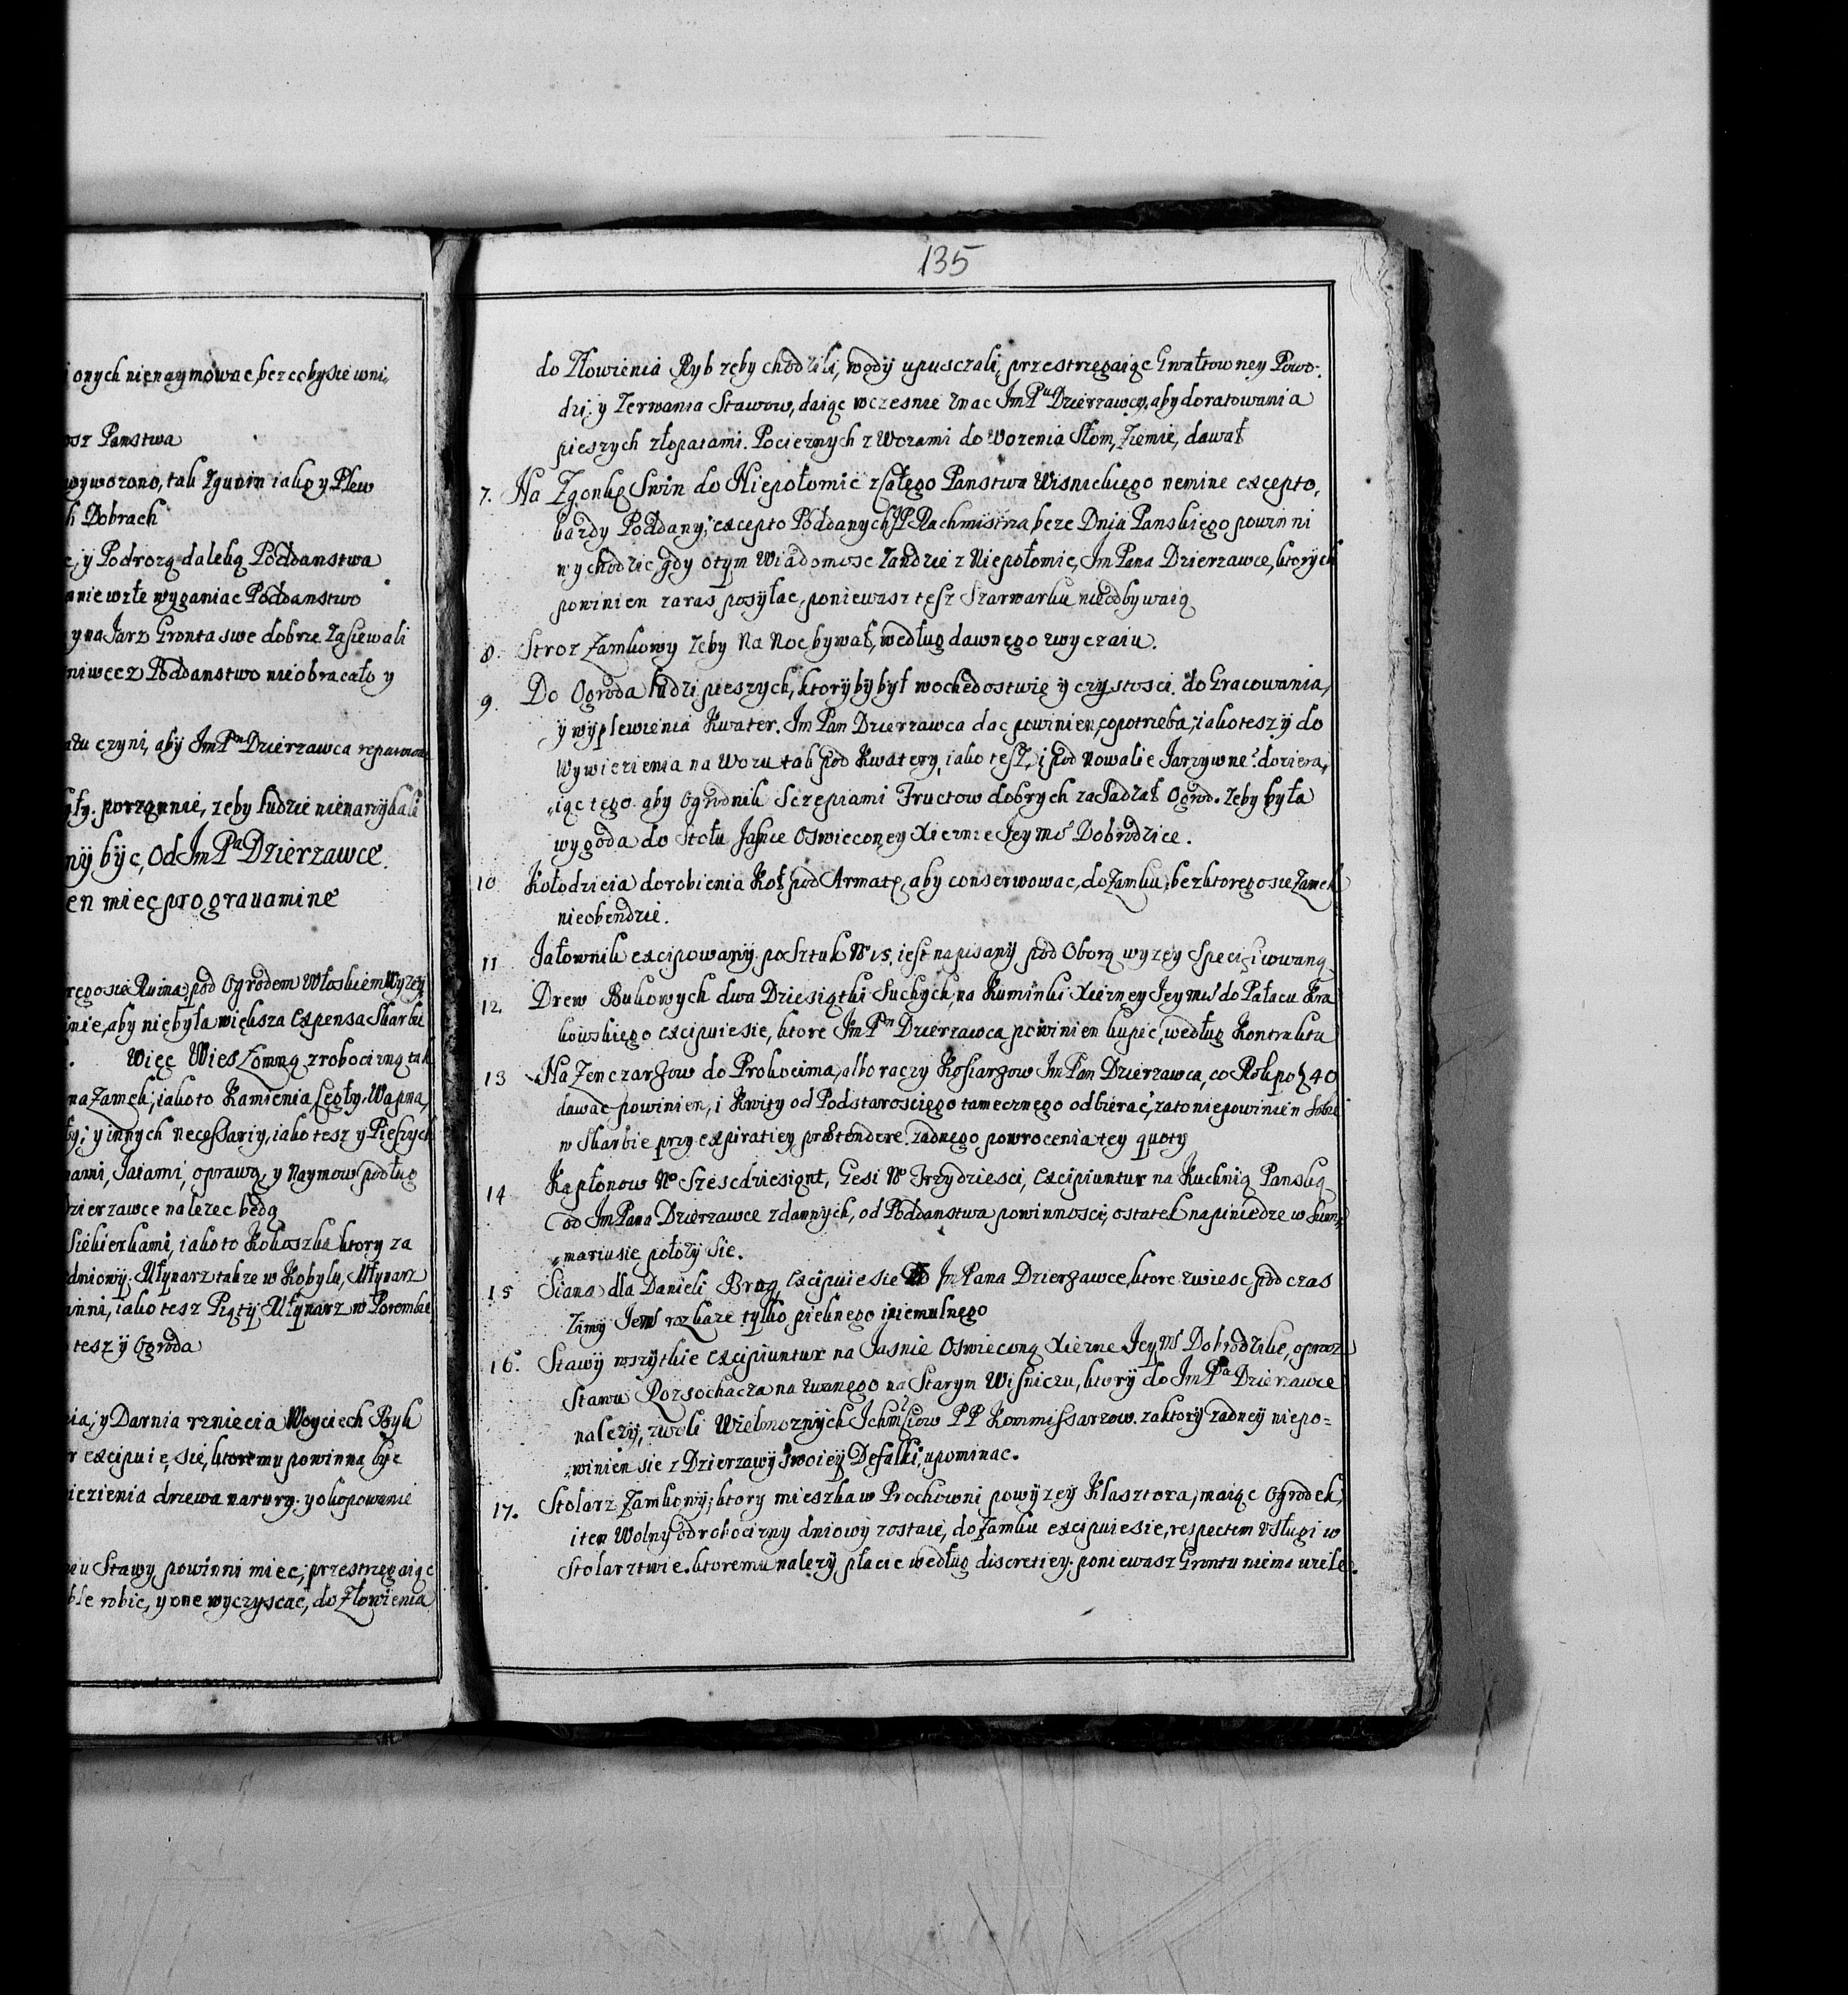 onych nienaymowac, bez cobysie wni,
osz Panstwa
wywozono, tak Zgunin iako y Plew
h Dobrach
c, y Podrozą daleką Poddanstwa
anie wzłe wyganiac Poddanstwo
y na Jarz Gronta swe dobrze Zasiewali
niwecz Poddanstwo nieobracało y
atu czyni, aby Jm Pn Dzierzawca reparowa
yły. porządnie, zeby ludzie nienarzykali
nÿ bÿc, Od Jm Pa Dzierzawce.
en miec pro grauamine
rego sie Ruina pod Ogrodem Włoskiem Wyzey
inie, aby niebyła większa Expensa Skarbu
Więc Wies Łomną z robocizną tak
na Zamek; iako to Kamienia Cegły, Wapna,
by; y innych necessariy, iako tesz y Pieszych
nami, Jaiami, oprawą, y Naymow podług
Dzierzawce nalezec będą
Siekierkami, iako to Kokoszka ktory za
dniowy. Młynarz takze w Kobylu, Młynarz
inni, iako tesz Piąty Młynarz w Porembie
tesz ÿ Ogroda
nia; y Darnia rzniecia Woyciech Byk
r excipuie, sie, ktoremu powinna byc
iezienia drzewa na rury. y okopowanie
niu Stawy powinni miec; przestrzegaiąc
ble robic, y one wyczyscac, do Złowienia
135
do Złowienia Ryb zeby chodzili, wodÿ upusczali, przestrzegaiąc Gwałtowney Powo-
dzi; y Zerwania Stawow, daiąc wczesnie znac Jm Pu Dzierzawcy. aby doratowania
pieszych złopatami. Pociezných z Wozami do Wozenia Słom, Ziemie, dawał
7. Na Zgonkę Swin do Niepołomic z Całego Panstwa Wisnickiego nemine excepto,
kazdy Poddany; excepto Poddanych JP Rachmistrza, beze Dnia Panskiego powinni
wychodzic, gdy otym Wiadomosc Zandzie z Niepołomic, Jm Pana Dzierzawce, ktorych
powinien zaras posyłac, poniewasz tesz Szarwarku nieodbywaią
8. Stroz Zamkowy zeby Na Noc bywał, według dawnego zwyczaiu.
9. Do Ogroda ludzi pieszych, ktorÿby był wochedostwie ÿ czystosci. do Gracowania,
ÿ wyplewienia Kwater. Jm Pan Dzierzawca dac powinien, co potrzeba; iako tesz ÿ do
Wywiezienia na Wozu tak pod Kwatery, iako tesz, i pod Nowalie Jarzywne. doziera,
iąc tego aby Ogrodnik Sczepiami Fructow dobrych zasadzał Ogrod. zeby była
wygoda do Stołu Jasnie Oswieconey Xieznie Jeymc Dobrodzice.
10 Kołodzieia do robienia Koł pod Armatę, aby conserwowac, do Zamku; bez ktorego sie Zamek
nieobendzie.
11 Jałownik excipowany po Sztuk No 15. iest napisany pod Oborą wyzey Specificowaną
12. Drew Bukowych dwa Dziesiątki Suchych, na Kuminki Xiezney Jeymc do Pałacu Kra
kowskiego excipuie sie, ktore Jm Pn Dzierzawca powinien kupic, według Kontraktu
13 Na Zenczarzow do Prokocima, albo raczy Kosiarzow Jm Pan Dzierzawca, co Rok po 40
dawac powinien, i Kwity od Podstarosciego tamecznego odbierac, zato niepowinien sobie
w Skarbie przy expiratiey prætendere. zadnego powrocenia tey quoty
14 Kapłonow No Szescdziesiont, Gesi No Trzydziesci, Excipiuntur na Kuchnią Panską
od Jm Pana Dzierzawce zdannych, od Poddanstwa powinnosci, ostatek napiniedze w Sum,
mariusie położy sie.
15 Siana dla Danieli Brog, Excipuie sie od Jm Pana Dzierzawce, ktore zwiesc pod czas
Zimÿ Jemc rozkaze tylko pieknego iniemulnego
16. Stawÿ wszÿtkie Excipiuntur na Jasnie Oswieconą Xiezne Jeymc Dobrodzike, oprocz
Stawu Rozsochacza nazwanego na Starym Wisniczu, ktorÿ do Jm Pa Dzierzawce
nalezÿ, zwoli Wielmoznÿch Jchmciow PP Kommissarzow. zaktorÿ zadneÿ niepo=
winien sie z Dzierzawÿ swoieÿ Defalki, upominac.
17. Stolarz Zamkowÿ; ktory mieszka w Prochowni powÿzeÿ Klasztora; maiąc Ogrodek,
item Wolny od robocizny dniowÿ zostaie, do Zamku excipuie sie, respectem Usługi w
Stolarztwie. ktoremu nalezÿ płacic według discretiey. poniewasz Grontu niema wiele.